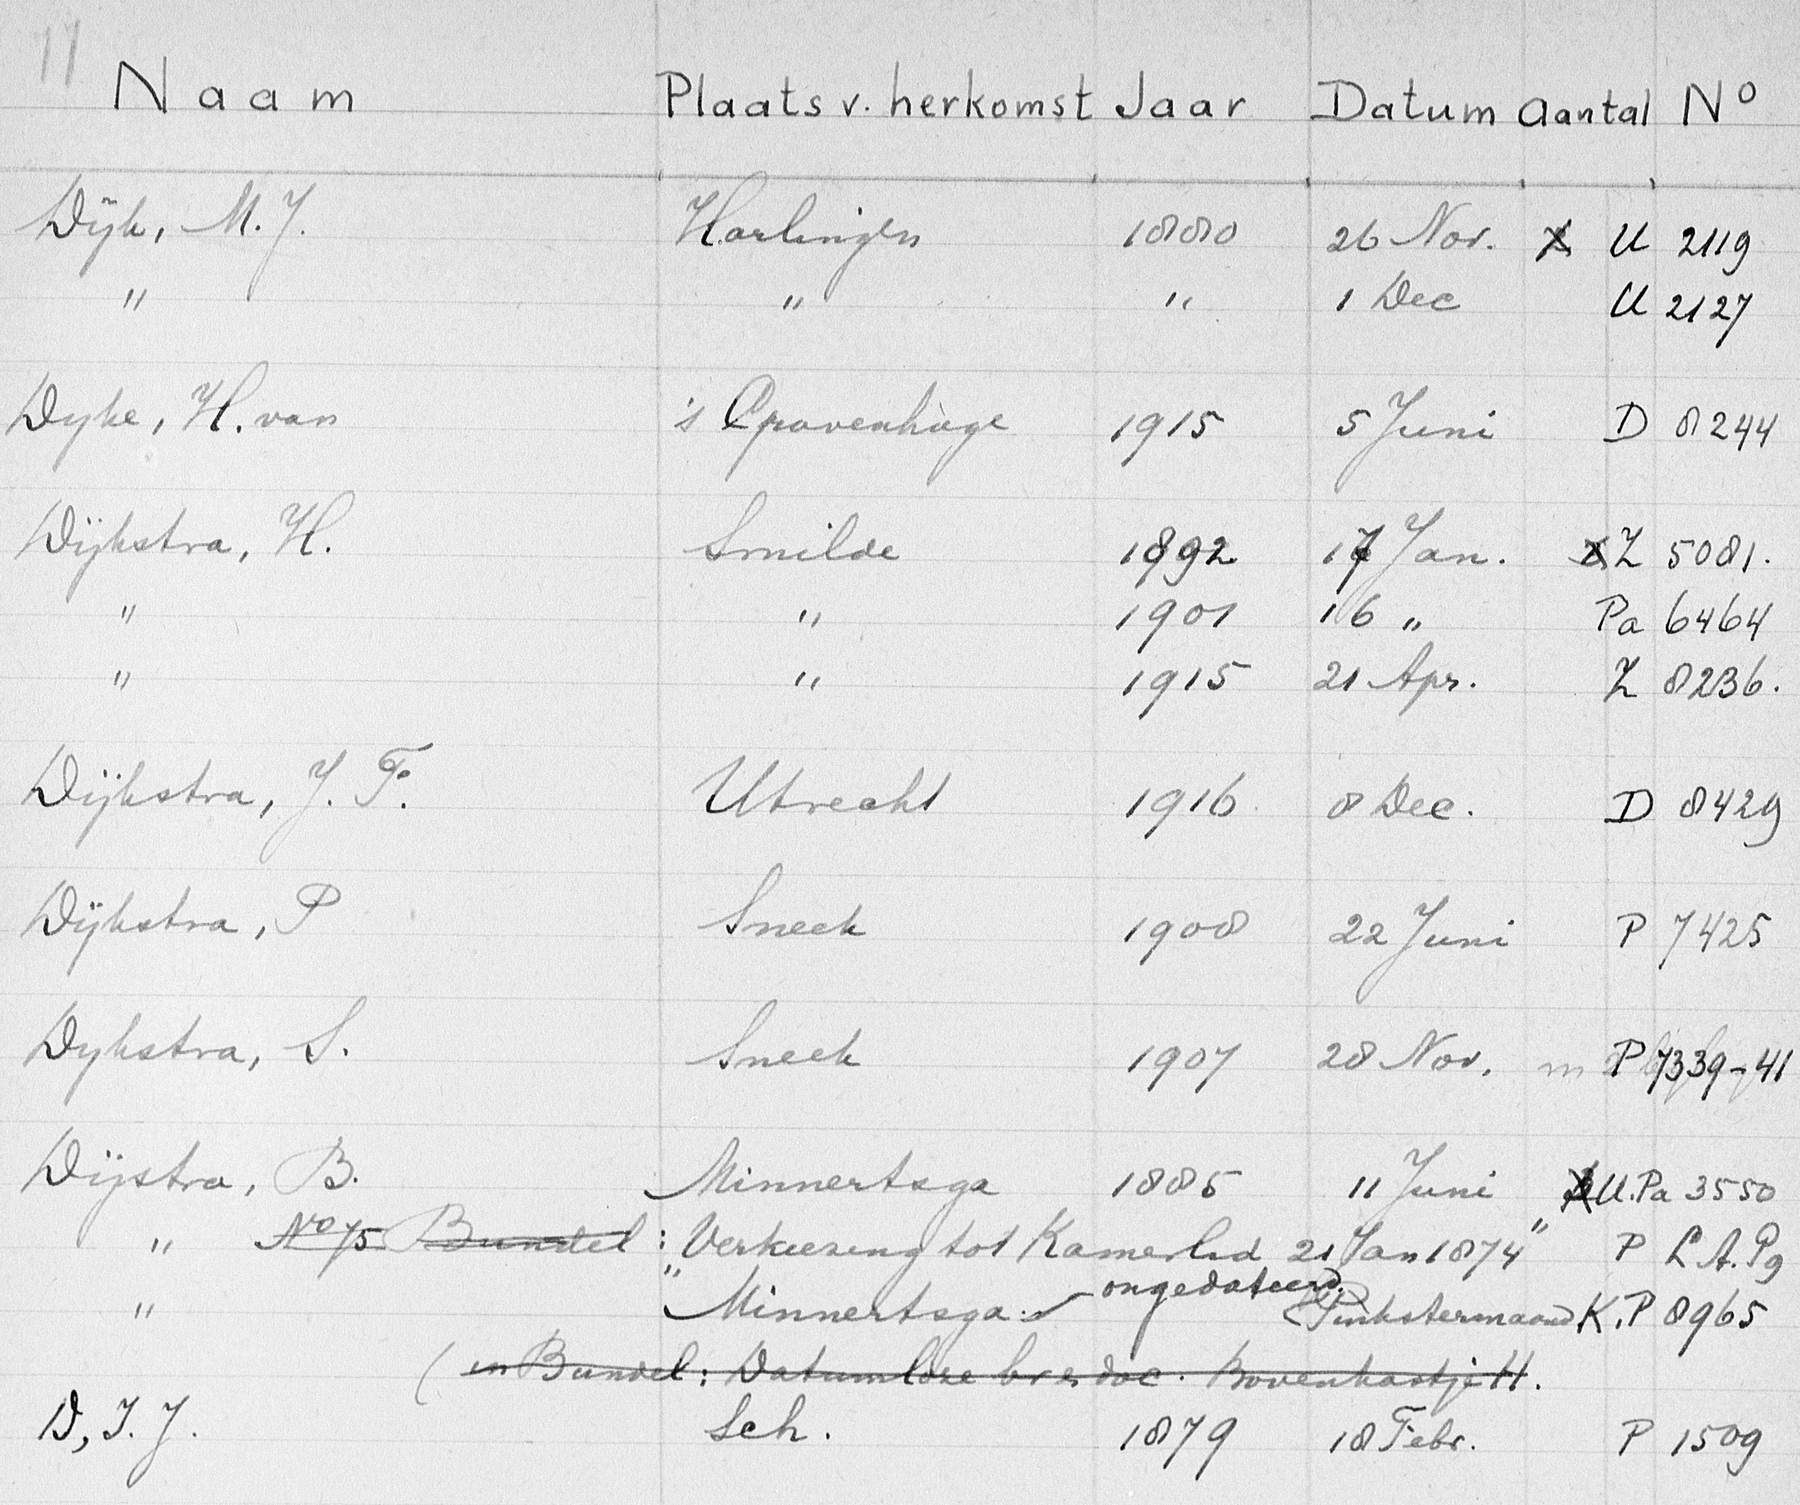 11
Naam Plaats v. herkomst Jaar Datum Aantal No
Dijk, M. J. Harlingen 1880 26 Nov. U 2119
" " " 1 Dec U 2127
Dyke, H. van 's Gravenhage 1915 5 Juni D 8244
Dijkstra, H. Smilde 1892 17 Jan. Z 5081.
" " 1901 16 " Pa 6464
" " 1915 21 Apr. Z 8236.
Dijkstra, J. F. Utrecht 1916 8 Dec. D 8429
Dijkstra, P Sneek 1908 22 Juni P 7425
Dykstra, S. Sneek 1907 28 Nov. P 7339-41
Dijstra, B. Minnertsga 1885 11 Juni U.Pa 3550
" No 75 Bundel : "Verkiezing tot Kamerlid 21 Jan 1874" P L.A. Pg
" " Minnertsga. ongedateerd. (Pinkstermaand K.P 8965
(in Bundel: Datumloze br en doc. Bovenkastje H.
D, I. J. Sch. 1879 18 Febr. P 1509